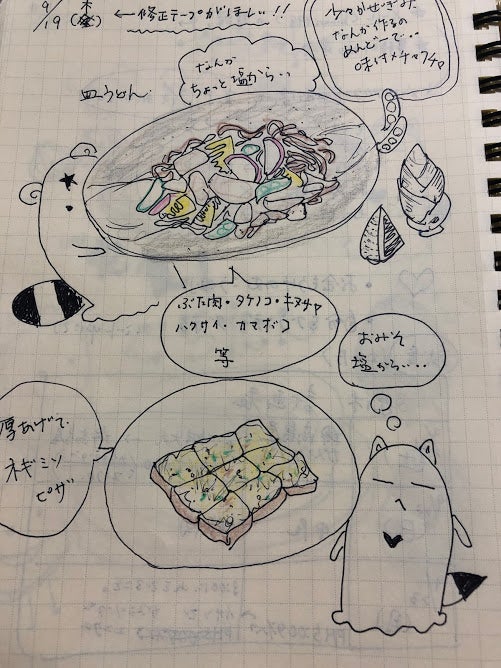 9/19 (木) ←修正テープがほしい!!
少々かぜぎみ
なんか作るの
めんどーで・・
味付メチャクチャ
なんか
ちょっと塩から・・
皿うどん
ぶた肉・タケノコ・キヌサヤ
ハクサイ・カマボコ
等
おみそ
塩から・・・・
厚あげで
ネギミソ
ピザ